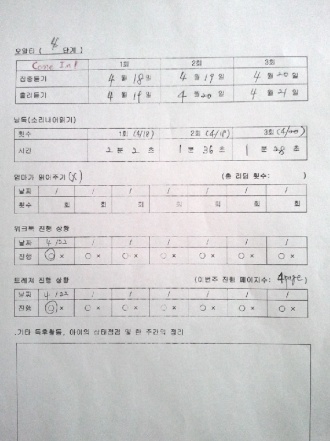 모델티 ( 4 단계 )
Come In! 1회 2회 3회
집중듣기 4 월 18 일 4 월 19 일 4 월 20 일
흘려듣기 4 월 19 일 4 월 20 일 4 월 21 일
낭독(소리내어읽기)
횟수 1회 (4/18) 2회 (4/19) 3회 (4/20)
시간 2 분 2 초 1 분 36 초 1 분 28 초
엄마가 읽어주기 (X) (총 리딩 횟수: )
날짜 / / / / / / /
횟수 회 회 회 회 회 회 회
워크북 진행 상황
날짜 4 /22 / / / / / /
진행 ○ × ○ × ○ × ○ × ○ × ○ × ○ ×
트레져 진행 상황 (이번주 진행 페이지수: 4page )
날짜 4 /22 / / / / / /
진행 ○ × ○ × ○ × ○ × ○ × ○ × ○ ×
.기타 독후활동, 아이의 상태점검 및 한 주간의 정리